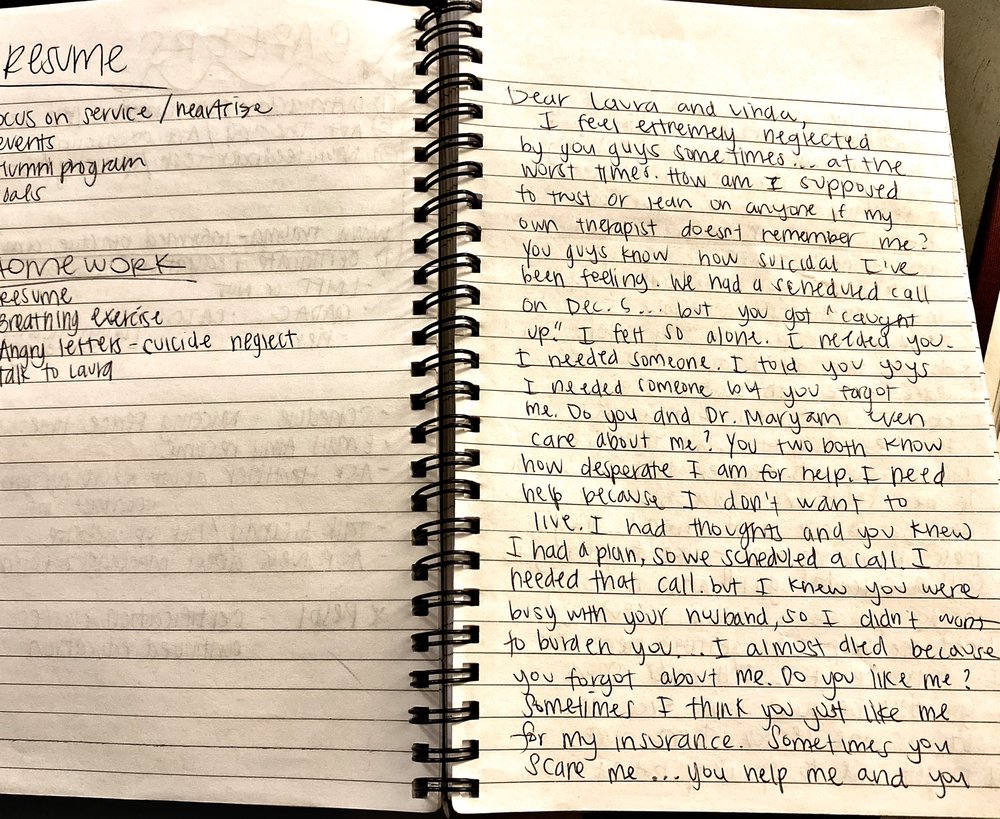 Resume
ocus on service / heartrise
events
Alumni program
oals
HOMEWORK
Resume
Breathing exercise
Angry letters - suicide neglect
talk to Laura
Dear Laura and Linda,
I feel extremely neglected
by you guys sometimes... at the
worst times. How am I supposed
to trust or lean on anyone if my
own therapist doesnt remember me?
You guys know how suicidal I've
been feeling. We had a scheduled call
on Dec. 5... but you got "caught
up." I felt so alone. I needed you.
I needed someone. I told you guys
I needed someone but you forgot
me. Do you and Dr. Maryam even
care about me? You two both know
how desperate I am for help. I need
help because I don't want to
live. I had thoughts and you knew
I had a plan, so we scheduled a call. I
needed that call. but I knew you were
busy with your husband, so I didn't want
to burden you... I almost died because
you forgot about me. Do you like me?
Sometimes I think you just like me
for my insurance. Sometimes you
scare me... you help me and you